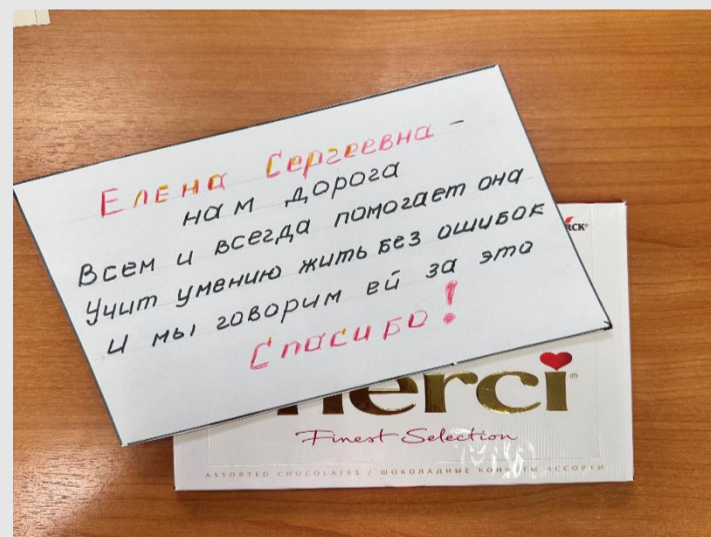 Елена Сергеевна -
нам дорога
Всем и всегда помогает она
Учит умению жить без ошибок
И мы говорим ей за это
Спасибо!
merci
Finest Selection
ASSORTED CHOCOLATES / ШОКОЛАДНЫЕ КОНФЕТЫ АССОРТИ